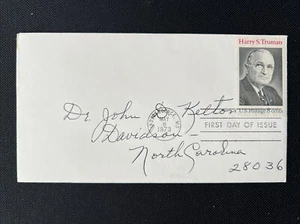 Harry S. Truman
U.S. Postage 8 cents
Dr. John S. Kelton
1973
FIRST DAY OF ISSUE
Davidson
North Carolina
28036